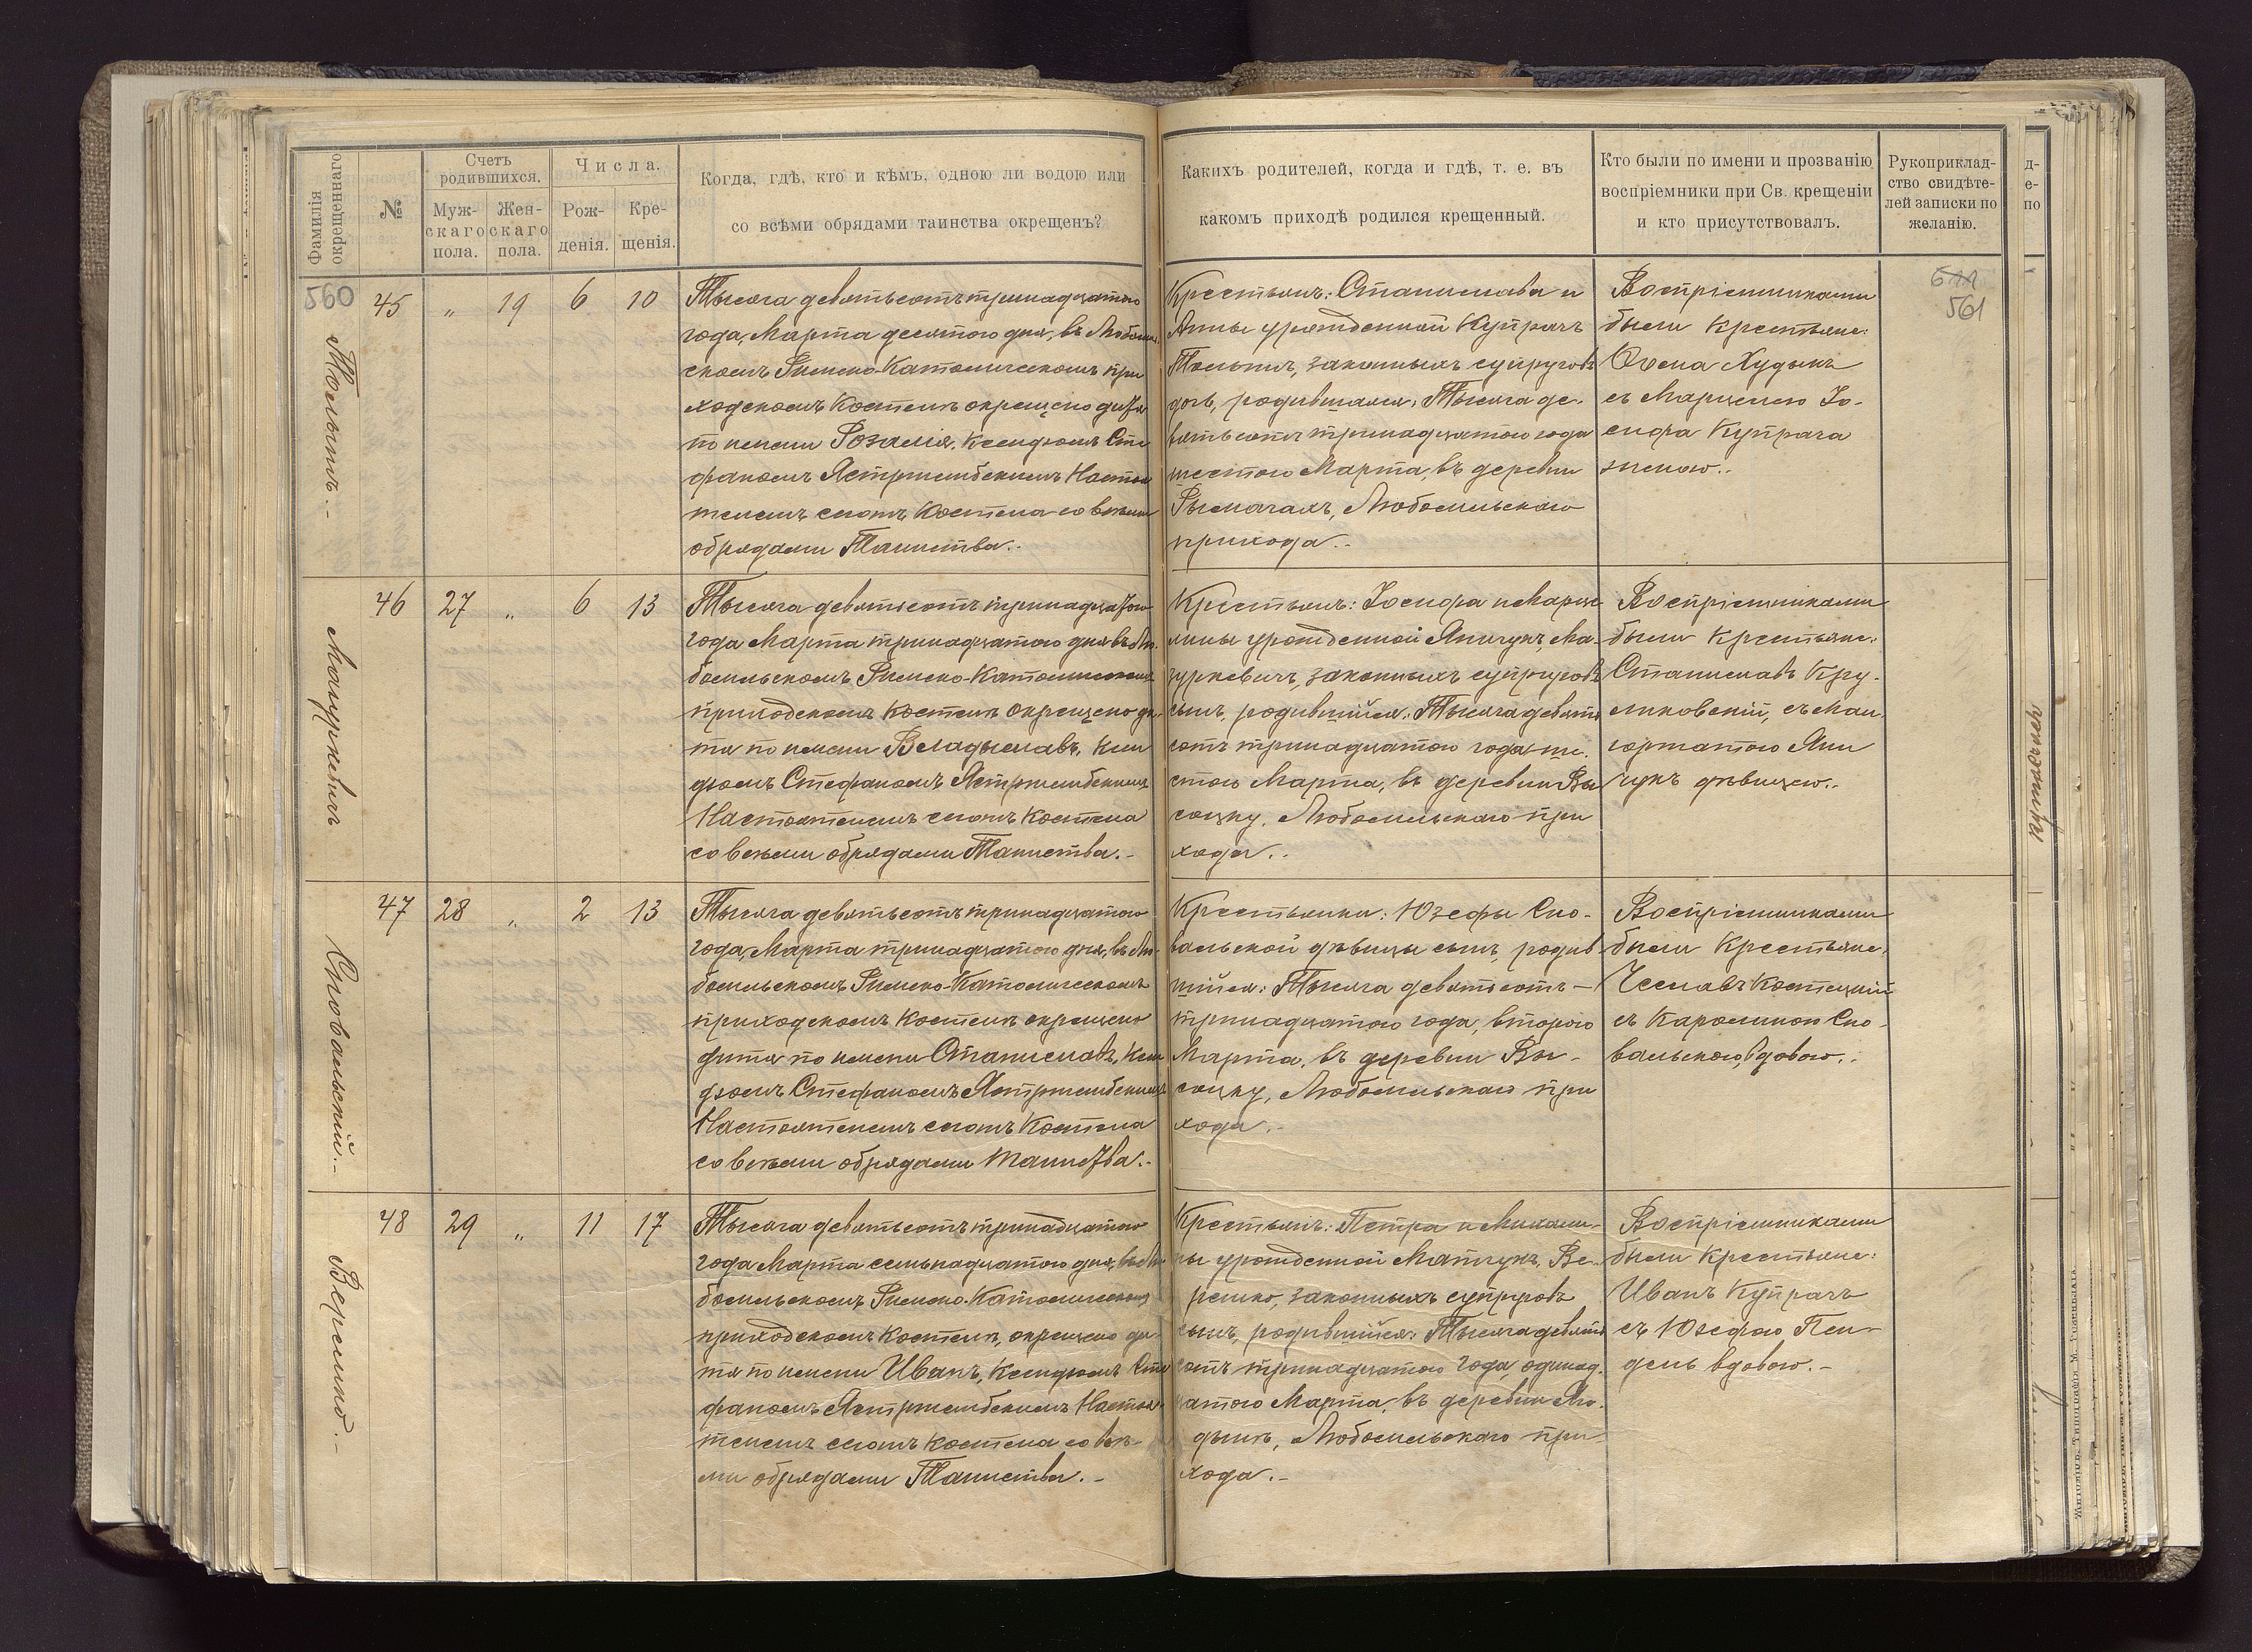 Фамилія окрещеннаго
№
Счетъ родившихся.
Мужскаго пола.
Женскаго пола.
Числа.
Рожденія.
Крещенія.
Когда, гдѣ, кто и кѣмъ, одною ли водою или
со всѣми обрядами таинства окрещенъ?
Какихъ родителей, когда и гдѣ, т. е. въ
какомъ приходѣ родился крещенный.
Кто были по имени и прозванію
воспріемники при Св. крещеніи
и кто присутствовалъ.
Рукоприклад-
ство свидѣте-
лей записки по
желанію.
560
561
45 „ 19 6 10
Тысяча девятьсотъ тринадцатаго
года, Марта десятого дня, въ Любомль
скомъ Римско-Католическомъ при
ходскомъ Костелѣ окрещено дитя
по имени Розалія, Ксендзомъ Сте
фаномъ Ястржембскимъ Настоя
телемъ сего Костела со всѣми
обрядами Таинства..
Крестьянъ: Станислава и
Анны урожденной Купрачъ
законныхъ супруговъ
дочь, родившаяся: Тысяча де-
вятьсотъ тринадцатого года
шестого Марта, въ деревни
Рымачахъ, Любомльскаго
прихода..
Воспріемниками
были Крестьяне:
Ѳома Худыкъ
съ Марцелею Іо-
сифа Купрача
женою..
46 27 „ 6 13
Мазуркевичъ
Тысяча девятьсотъ тринадцатого
года Марта тринадцатого дня въ Лю-
бомльскомъ Римско-Католическомъ
приходскомъ Костелѣ окрещено ди-
тя по имени Владыславъ, Ксен
дзомъ Стефаномъ Ястржембскимъ
Настоятелемъ сего Костела
со всѣми обрядами Таинства.-
Крестьянъ: Іосифа и Марце
лины урожденной Янчукъ, Ма-
зуркевичъ, законныхъ супруговъ
сынъ, родившійся: Тысяча девять
сотъ тринадцатого года ше-
стого Марта, въ деревни Вы
соцку, Любомльскаго при
хода..
Воспріемниками
были Крестьяне:
Станиславъ Кру-
ликовскій, съ Мал
горжатою Ян
чукъ дѣвицею..
47 28 „ 2 13
Сновальскій.-
Тысяча девятьсотъ тринадцатого
года, Марта тринадцатого дня, въ Лю-
бомльскомъ Римско-Католическомъ
приходскомъ Костелѣ окрещено
дитя по имени Станиславъ, Ксен
дзомъ Стефаномъ Ястржембскимъ
Настоятелемъ сего Костела
со всѣми обрядами Таинства.-
Крестьянки: Юзефы Сно-
вальской дѣвицы сынъ, родив
шійся: Тысяча девятьсотъ —
тринадцатого года, второго
Марта, въ деревни Вы-
соцку, Любомльскаго при
хода.-
Воспріемниками
были Крестьяне,
Чеславъ Костецкій
съ Каролиною Сно-
вальскою, вдовою..
48 29 „ 11 17
Веремко.-
Тысяча девятьсотъ тринадцатого
года Марта семнадцатого дня, въ Лю
бомльскомъ Римско-Католическомъ
приходскомъ Костелѣ, окрещено ди-
тя по имени Иванъ, Ксендзомъ Сте
фаномъ Ястржембскимъ Настоя-
телемъ сего Костела со всѣ-
ми обрядами Таинства.-
Крестьянъ: Петра и Михали-
ны урожденной Матчукъ, Ве-
ремко, законныхъ супруговъ
сынъ, родившійся: Тысяча девять
сотъ тринадцатого года, одинад-
цатого Марта, въ деревни
Любомльскаго при-
хода.-
Воспріемниками
были Крестьяне:
Иванъ Купрачъ
съ Юзефою Пен-
дель вдовою.-